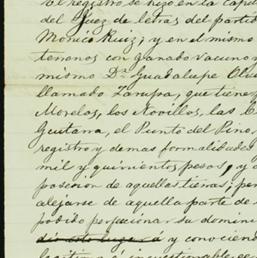 El registro se hizo en la capit
del Juez de letras del partid
Monico Ruiz; y en el mismo
terrenos con ganado vacuno y
mismo Dn. Guadalupe
llamado Zarupa, que tiene p
Morelos, los Novillos, las C
el Puerto del Pino,
registro y demas formalidades
mil y quinientos pesos, y a
posesion de aquellas tierras; per
alejarse de aquella parte de s
su domini
á y conocien